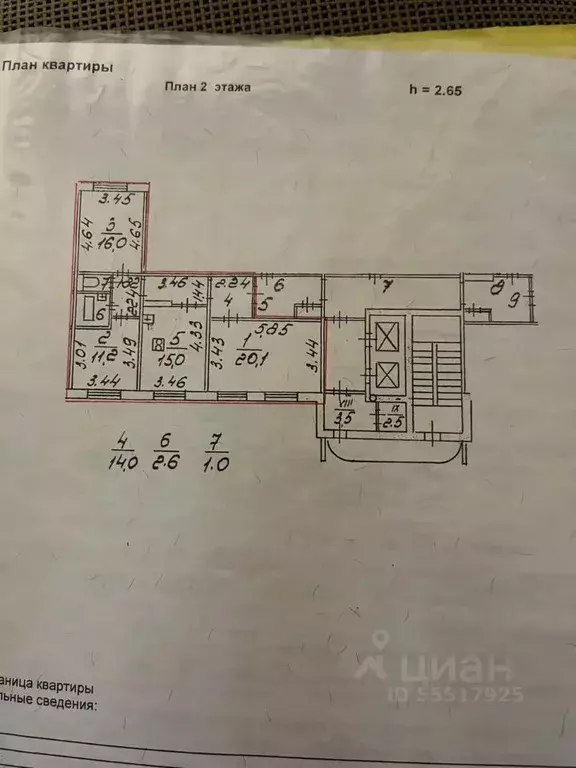 План квартиры
План 2 этажа
h = 2.65
3.45
4.64
3
16.0
4.65
7
1.82
3.46
2.24
6
7
8
2.42
1.44
4
5
9
6
5.85
2
11.2
3.01
3.49
5
15.0
4.33
3.43
1
20.1
3.44
3.44
3.46
VIII
3.5
IX
2.5
4
14.0
6
2.6
7
1.0
циан
ID 55517925
аница квартиры
льные сведения: